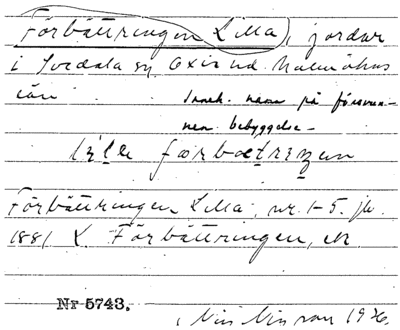 Förbättringen Lilla, jordar
i Svedala sn Oxie hd Malmöhus
län
Innek. namn på försvun-
nen bebyggelse-
Förbättringen Lilla, nr. 1-5. jb.
1881 L. Förbättringen, ek
Nr 5743.
1926.